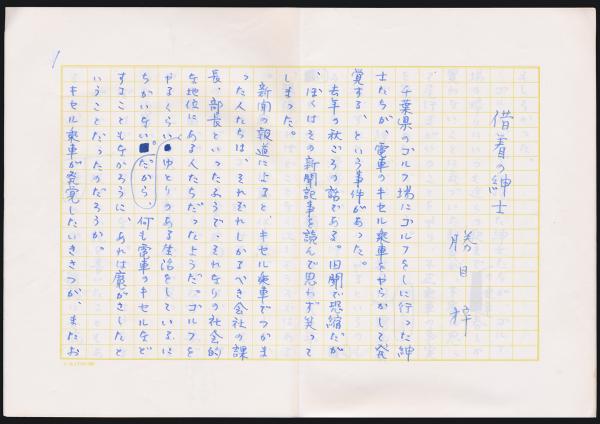 借着の紳士
勝目梓
千葉県のゴルフ場にゴルフをしに行った紳
士たちが、電車のキセル乗車をやらかして発
覚する、という事件があった。
去年の秋ごろの話である。旧聞で恐縮だが
、ぼくはその新聞記事を読んで思わず笑って
しまった。
新聞の報道によると、キセル乗車でつかま
った人たちは、それぞれしかるべき会社の課
長、部長といったようで、それなりの社会的
な地位にある人たちだったようだ。ゴルフを
やるくらいゆとりのある生活をしているに
ちがいないだから、何も電車のキセルなど
することもなかろうに、あれは魔がさしたと
いうことだったのだろうか。
キセル乗車が発覚したいきさつが、またお